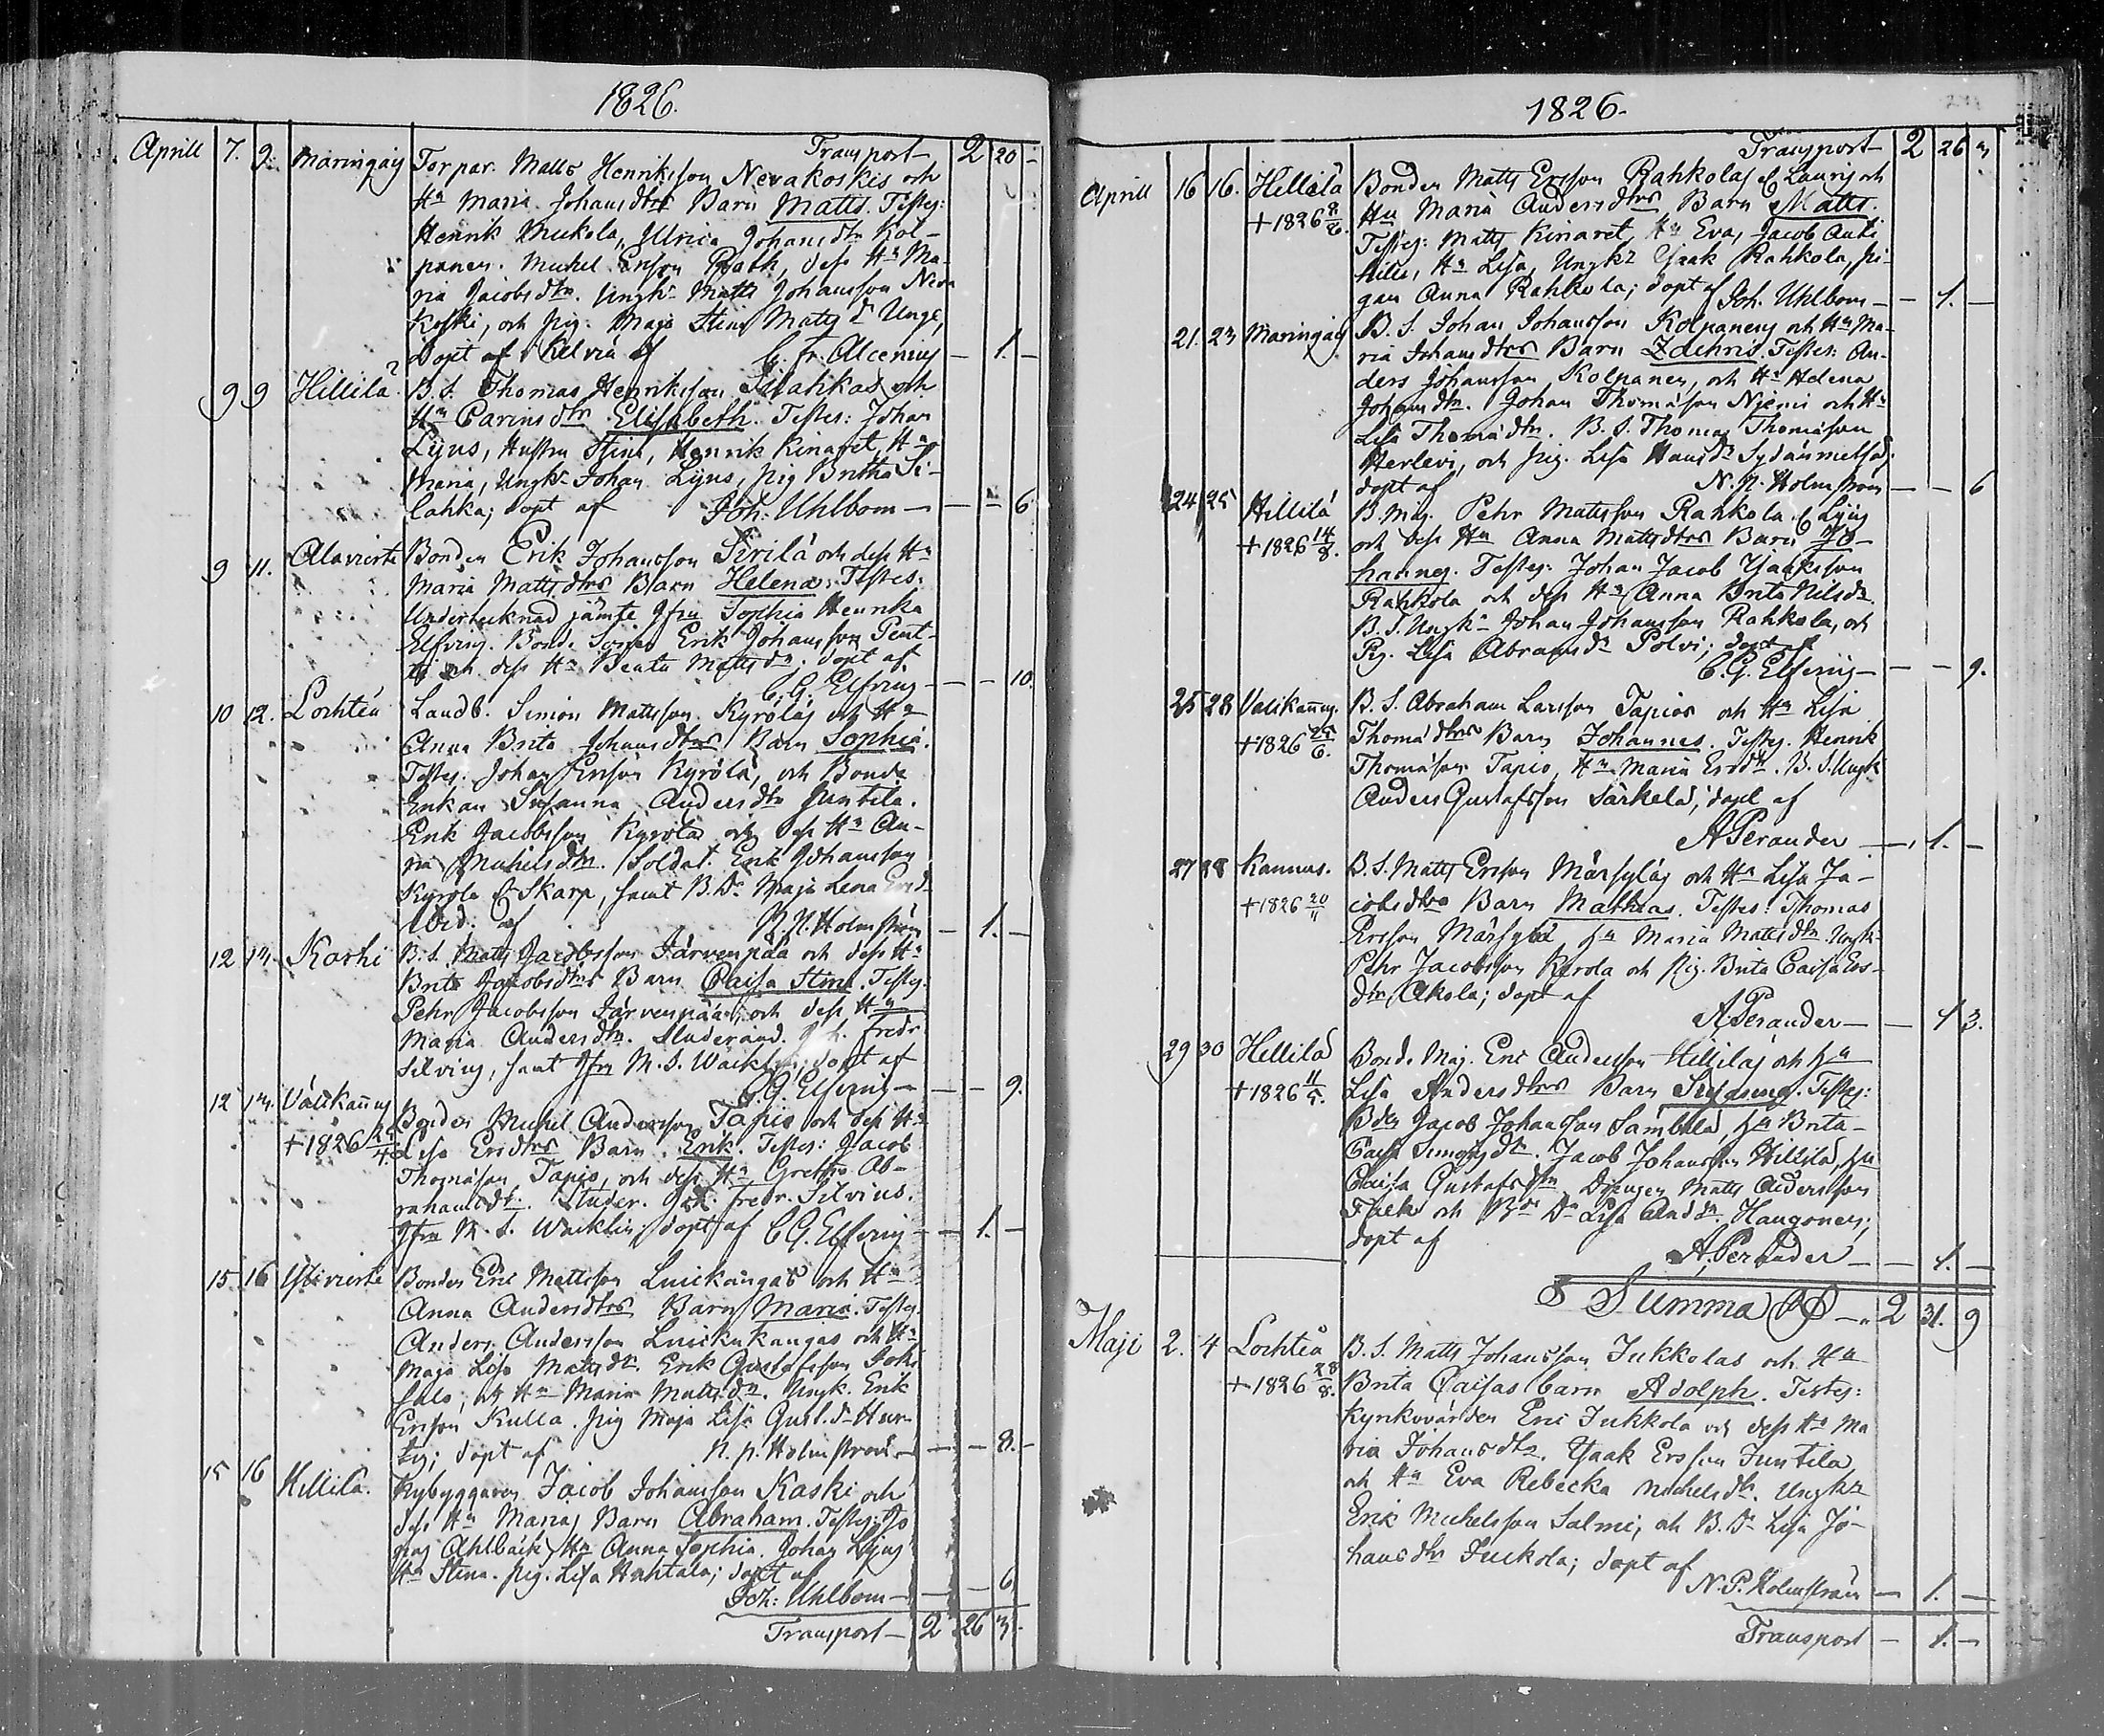 1826.
Transport — 2 20 -
Aprill 7. 9. Maringais Torpar. Matts Henriksson Nevakoskis och
Hu Maria Johansdtrs Barn Matts. Testes:
Henrik Mickola, Ulrica Johansdtr Kol-
panen. Michel Ersson Rath, dess Hu Ma-
ria Jacobsdtr. Ungk. Matts Johansson Neva
Koski, och Pig. Maja Stina Matts dr Unge,
döpt af i Kelviå af C. Fr. Alcenius — 1. —
9 9 Hillilä B. S. Thomas Henriksson Silahkas och
Hu Carins dtr Elisabeth. Testes: Johan
Lyus, Hustru Stina, Henrik Kinaret, Hu
Maria, Ungk. Johan Lyus, Pig Britha Si-
lahka; döpt af Joh: Uhlbom — — 6
9 11. Alavierte Bonden Erik Johansson Sirilä och dess Hu
Maria Mattsdtrs Barn Helena. Testes:
Undertecknad jämte Jfru Sophia Henrika
Elfving. Bonde Sonen Erik Johansson Pent-
ti och dess Hu Beata Mattsdr. döpt af
C. G. Elfving — — 10.
10 12. Lochteå Landb. Simon Mattsson Kyröläs och Hu
Anna Brita Johansdtrs Barn Sophia.
Testes. Johan Ersson Kyrölä, och Bonde
Enkan Susanna Andersdtr Juntila.
Erik Jacobsson Kyrölä och dess Hu An-
na Michelsdtr. Soldat. Erik Johansson
Kyrölä & Skarp, samt B. Dr Maja Lena Ersd
ibid. af N. P. Holmström — 1. —
12 13. Kaski B. S. Matts Jacobsson Järvenpää och dess Hu
Brita Jacobsdtrs Barn Caisa Stina. Testes.
Pehr Jacobsson Järvenpää, och dess Hu
Maria Andersdtr. Studerand. Joh. Fredr.
Silvius, samt Jfru M. S. Wacklin; döpt af
C. G. Elfving — — 9.
12 13. Välikannus Bonden Michel Andersson Tapio och dess Hu
+ 1826 Lisa Ersdtrs Barn Erik. Testes: Jacob
Thomasson Tapio, och dess Hu Gretha Ab-
rahamsdtr. Studer. Joh. Fredr. Silvius.
Jfru M. S. Wacklin; döpt af C. G. Elfving — 1. —
15 16 Ylivierte Bonden Eric Mattsson Luickungas och Hu
Anna Andersdtrs Barn Maria. Testes.
Anders Andersson Luickukangas och Hu
Maja Lisa Mattsdr. Erik Gustafsson Joki
salo, och Hu Maria Mattsdtr. Ungk. Erik
Ersson Kulla. Pig Maja Lisa Gust. dr
döpt af N. P. Holmström — — 8. -
15 16 Hillilä. Nybyggaren Jacob Johansson Kaski och
dess Hu Marias Barn Abraham. Testes: Jo
nas Ahlbäck, Hu Anna Sophia. Johan Lyus
Hu Stina. Pig. Lisa Huhtala; döpt af
Joh: Uhlbom — — 6
Transport — 2 26 3 -
1826.
Transport — 2 26 3
Aprill 16 16. Hillilä Bonden Matts Ersson Rahkolas & Lauris och
+ 1826 8/6. Hu Maria Andersdtrs Barn Matts.
Testes: Matts Kinaret, Hu Eva, Jacob Anti
Hu Lisa, Ungkr Isaak Rahkola, pi-
gan Anna Rahkola; döpt af Joh. Uhlbom — 1. —
21. 23 Maringais B. S. Johan Johansson Kolpanens och Hu Ma-
ria Johansdtrs Barn Zachris. Testes: An-
ders Johansson Kolpanen, och Hu Helena
Johansdtr. Johan Thomasson Niemi och Hu
Lisa Thomasdtr. B. S. Thomas Thomasson
Herlevi, och Pig. Lisa Hansdr Sydänmetsä;
döpt af N. P. Holmström — — 6
24 25 Hillilä B. Måg. Pehr Mattsson Rahkola & Lyus
+ 1826 14/8. och dess Hu Anna Mattsdtrs Barn Jo-
hannes. Testes: Johan Jacob Isaaksson
Rahkola och dess Hu Anna Brita Nilsdr
B. S. Ungk. Johan Johansson Rahkola, och
Pig. Lisa Abramsdr Polvi; döpt af
C. G. Elfving — — 9.
25 28 Välikannus. B. S. Abraham Larsson Tapios och Hu Lisa
+ 1826 25/6. Thomasdtrs Barn Johannes. Testes. Henrik
Thomasson Tapio, Hu Maria Ersdtr. B. S. Ungk
Anders Gustafsson Särkelä, döpt af
A Perander — 1. —
27 28 Kannus. B. S. Matts Ersson Märsyläs och Hu Lisa Ja-
+ 1826 20/11 cobsdtrs Barn Mathias. Testes: Thomas
Ersson Märsylä Hu Maria Mattsdtr Ungk.
Pehr Jacobsson Kerola och Pig. Brita Caisa Ers-
dtr Akola; döpt af
A Perander — — 1 3.
29 30 Hillilä Bond. Måg. Eric Andersson Hilliläs och Hu
+ 1826 11/5. Lisa Andersdtrs Barn Testes:
Bden Jacob Johansson Sämbilä, Hu Brita
Caisa Simonsdtr. Jacob Johansson Hillilä, Hu
Caisa Gustafsdtr Drengen Matts Andersson
Falk och Bde Dr Lisa And dr Haugonen;
döpt af
A. Perander — — 1. —
S Summa RS — 2 31. 9
Maji 2. 4 Lochteå B. S. Matts Johansson Jukkolas och Hu
+ 1826 28/8. Brita Caisas barn Adolph. Testes:
Kyrkovärden Eric Jukkola och dess Hu Ma
ria Johansdtr. Isaak Ersson Juntila
och Hu Eva Rebecka Michelsdtr. Ungkr
Erik Michelsson Salmi, och B. Dr Lisa Jo-
hansdtr Juckola; döpt af
N. P. Holmström — 1. —
Transport — 1. —